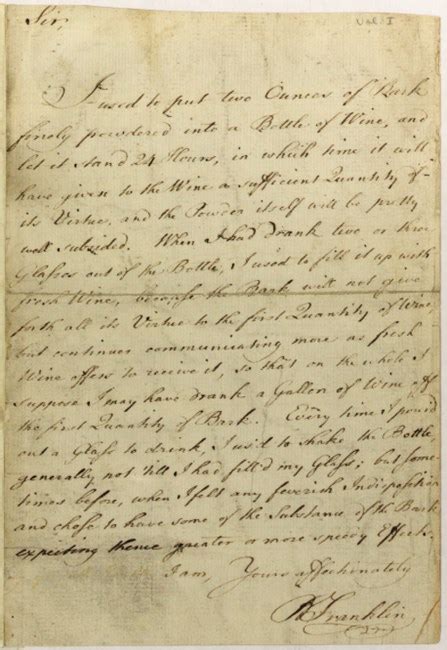 Sir,
Vol. I
I used to put two Ounces of Bark
finely powdered into a Bottle of Wine, and
let it stand 24 Hours, in which time it will
have given to the Wine a sufficient Quantity of
its Virtue, and the Powder itself will be pretty
well subsided. When I had drank two or three
Glasses out of the Bottle, I used to fill it up with
fresh Wine, because the Bark will not give
forth all its Virtue to the first Quantity of Wine
but continues communicating more as fresh
Wine offers to receive it, so that on the whole I
suppose I may have drank a Gallon of Wine off
the first Quantity of Bark. Every time I pour'd
out a Glass to drink, I us'd to shake the Bottle,
generally not till I had fill'd my Glass; but some-
times before, when I felt any feverish Indisposition
and chose to have some of the Substance of the Bark
expecting thence greater or more speedy Effects.
I am, Yours affectionately
B Franklin